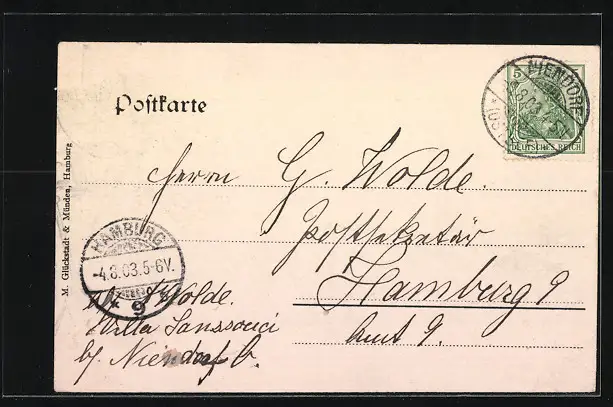 Postkarte
M. Glückstadt & Münden, Hamburg
5
DEUTSCHES REICH
NIENDORF
HAMBURG
-4.8.03.5-6V.
9
Herrn G. Wolde.
Postsekretär
Hamburg 9
Amt 9.
Wolde.
Villa Sanssouci
b/ Niendorf O.